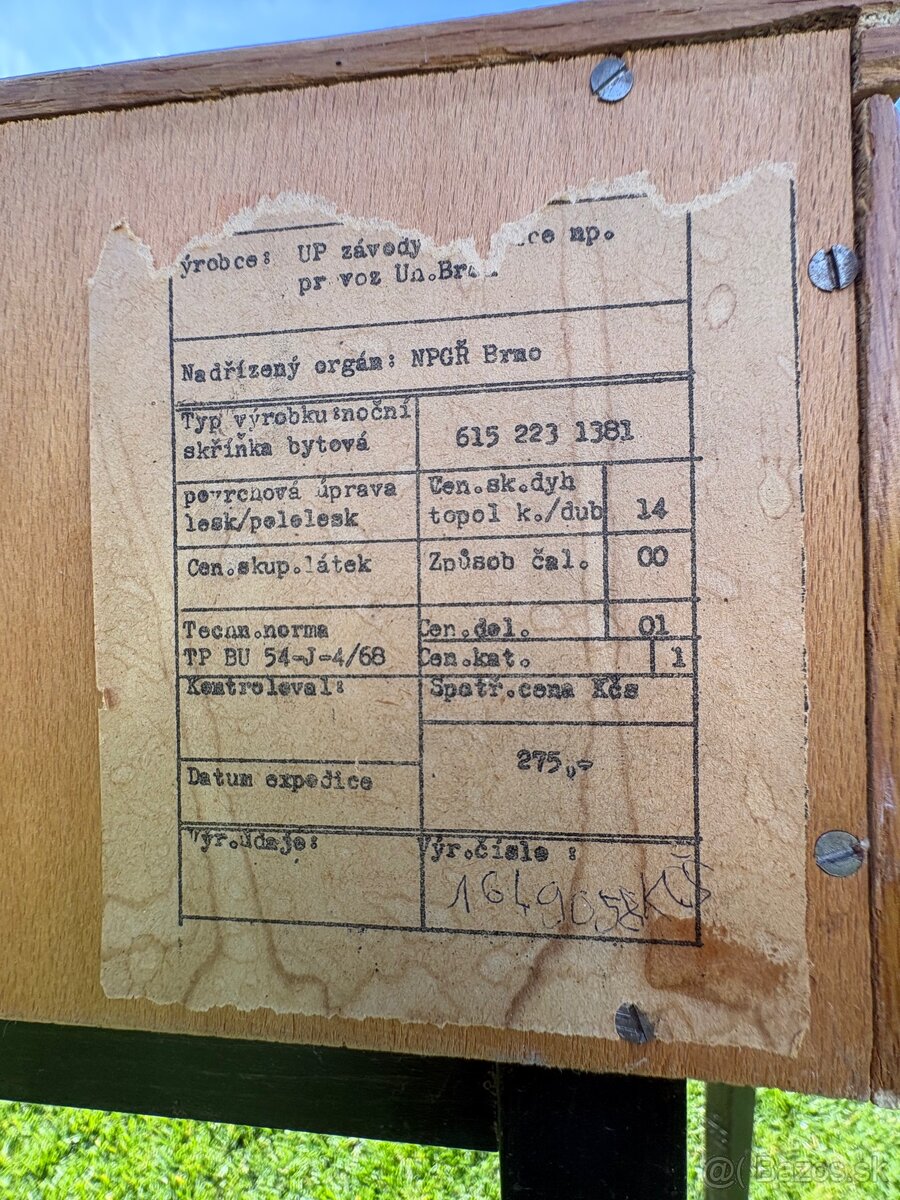 ýrobce: UP závody ce np.
pr voz Un.Br
Nadřízený orgán: NPGŘ Brno
Typ výrobku:noční
skříňka bytová
615 223 1381
povrchová úprava
lesk/pololesk
Cen.sk.dyh
topol k./dub 14
Cen.skup.látek
Způsob čal. 00
Techn.norma
TP BU 54-J-4/68
Cen.del. 01
Cen.kat. 1
Kontroloval:
Spotř.cena Kčs
275,-
Datum expedice
Výr.údaje:
Výr.číslo :
@(Bazos.sk